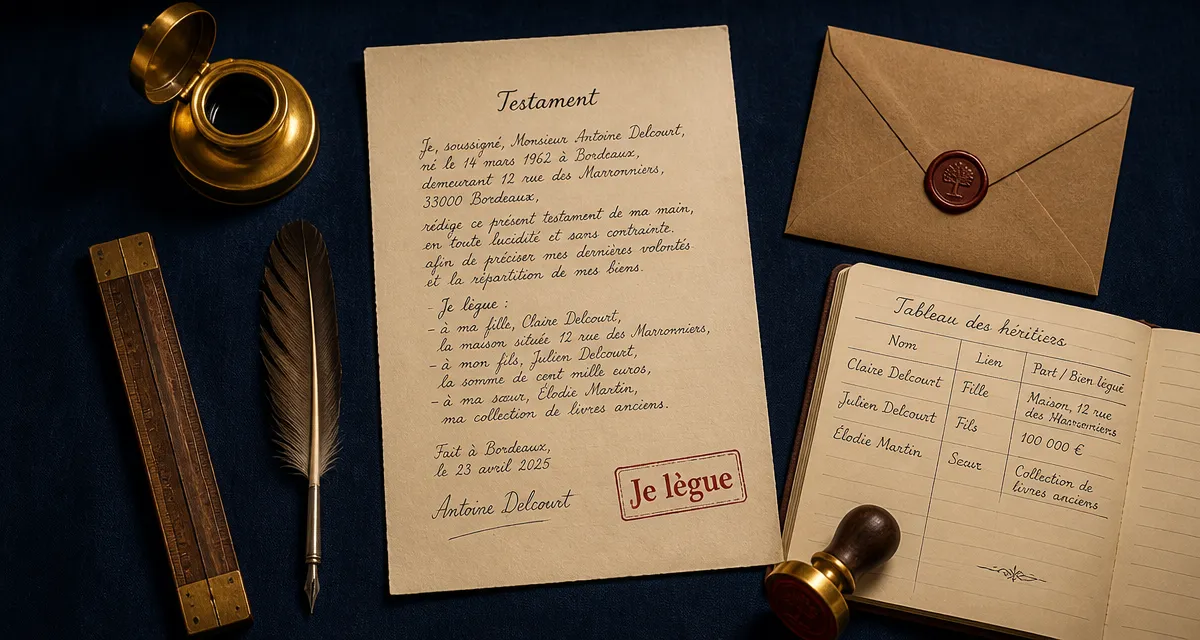 Testament
Je, soussigné, Monsieur Antoine Delcourt,
né le 14 mars 1962 à Bordeaux,
demeurant 12 rue des Marronniers,
33000 Bordeaux,
rédige ce présent testament de ma main,
en toute lucidité et sans contrainte.
afin de préciser mes dernières volontés
et la répartition de mes biens.
- Je lègue :
- à ma fille, Claire Delcourt,
la maison située 12 rue des Marronniers,
- à mon fils, Julien Delcourt,
la somme de cent mille euros,
- à ma sœur, Élodie Martin,
ma collection de livres anciens.
Fait à Bordeaux,
le 23 avril 2025
Antoine Delcourt
Je lègue
Tableau des héritiers
Nom Lien Part / Bien légué
Claire Delcourt Fille Maison, 12 rue
des Marronniers
Julien Delcourt Fils 100 000 €
Élodie Martin Seaur Collection de
livres anciens